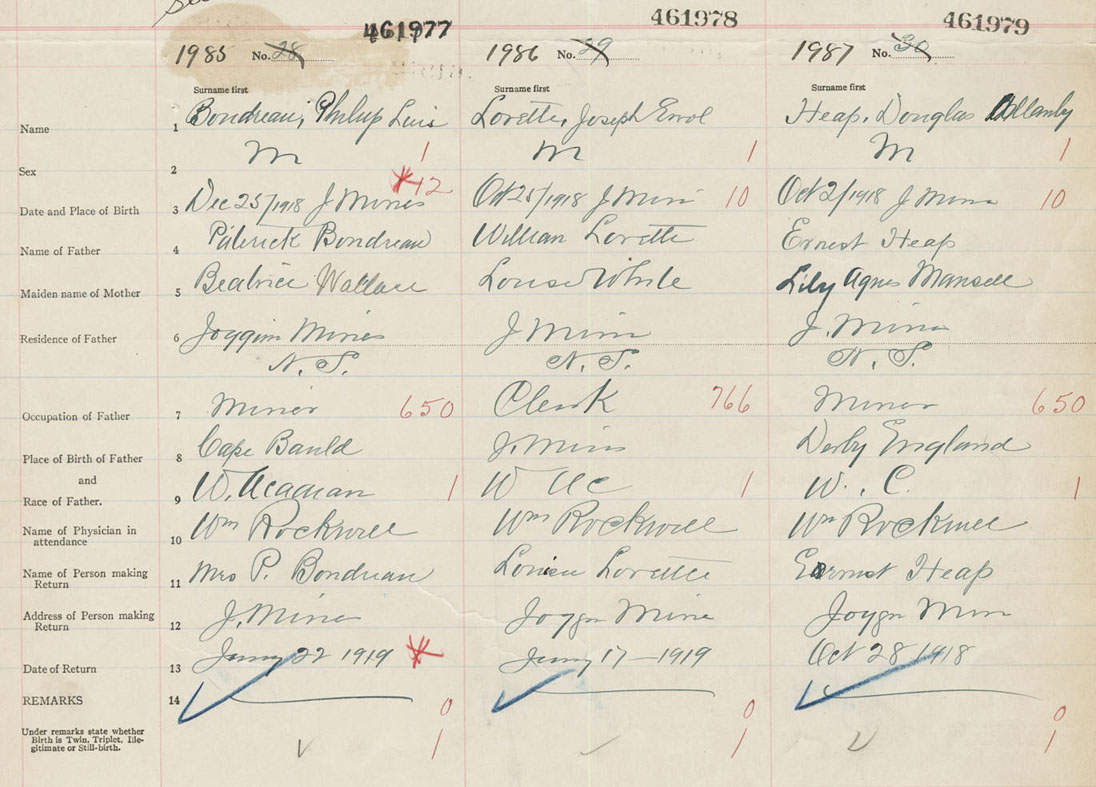 461977 461978 461979
1985 No. 28 1986 No. 29 1987 No. 30
Surname first Surname first Surname first
Name 1 Bondreau, Philip Luis Lovette, Joseph Errol Heap, Douglas Allanby
Sex 2 M 1 M 1 M 1
Date and Place of Birth 3 Dec 25/1918 J Mines *12 Oct 25/1918 J Min 10 Oct 2/1918 J Mins 10
Name of Father 4 Patrick Bondreau William Lovette Ernest Heap
Maiden name of Mother 5 Beatrice Wallace Louise White Lily Agnes Mansell
Residence of Father 6 Joggins Mines J Mines J. Mines
N. S. N. S. N. S.
Occupation of Father 7 Miner 650 Clerk 766 Miner 650
Place of Birth of Father 8 Cape Bauld J. Mins Derby England
and
Race of Father. 9 W. Acadian 1 W Ac 1 W. . C. 1
Name of Physician in attendance 10 Wm Rockwell Wm Rockwell Wm Rockwell
Name of Person making Return 11 Mrs P. Bondreau Louise Lovette Earnest Heap
Address of Person making Return 12 J. Mines Joggn Mine Joggn Min
Date of Return 13 Jany 22 1919 * Jany 17-1919 Oct 28 1918
REMARKS 14 0 0 0
Under remarks state whether Birth is Twin, Triplet, Ille-
gitimate or Still-birth. 1 1 1